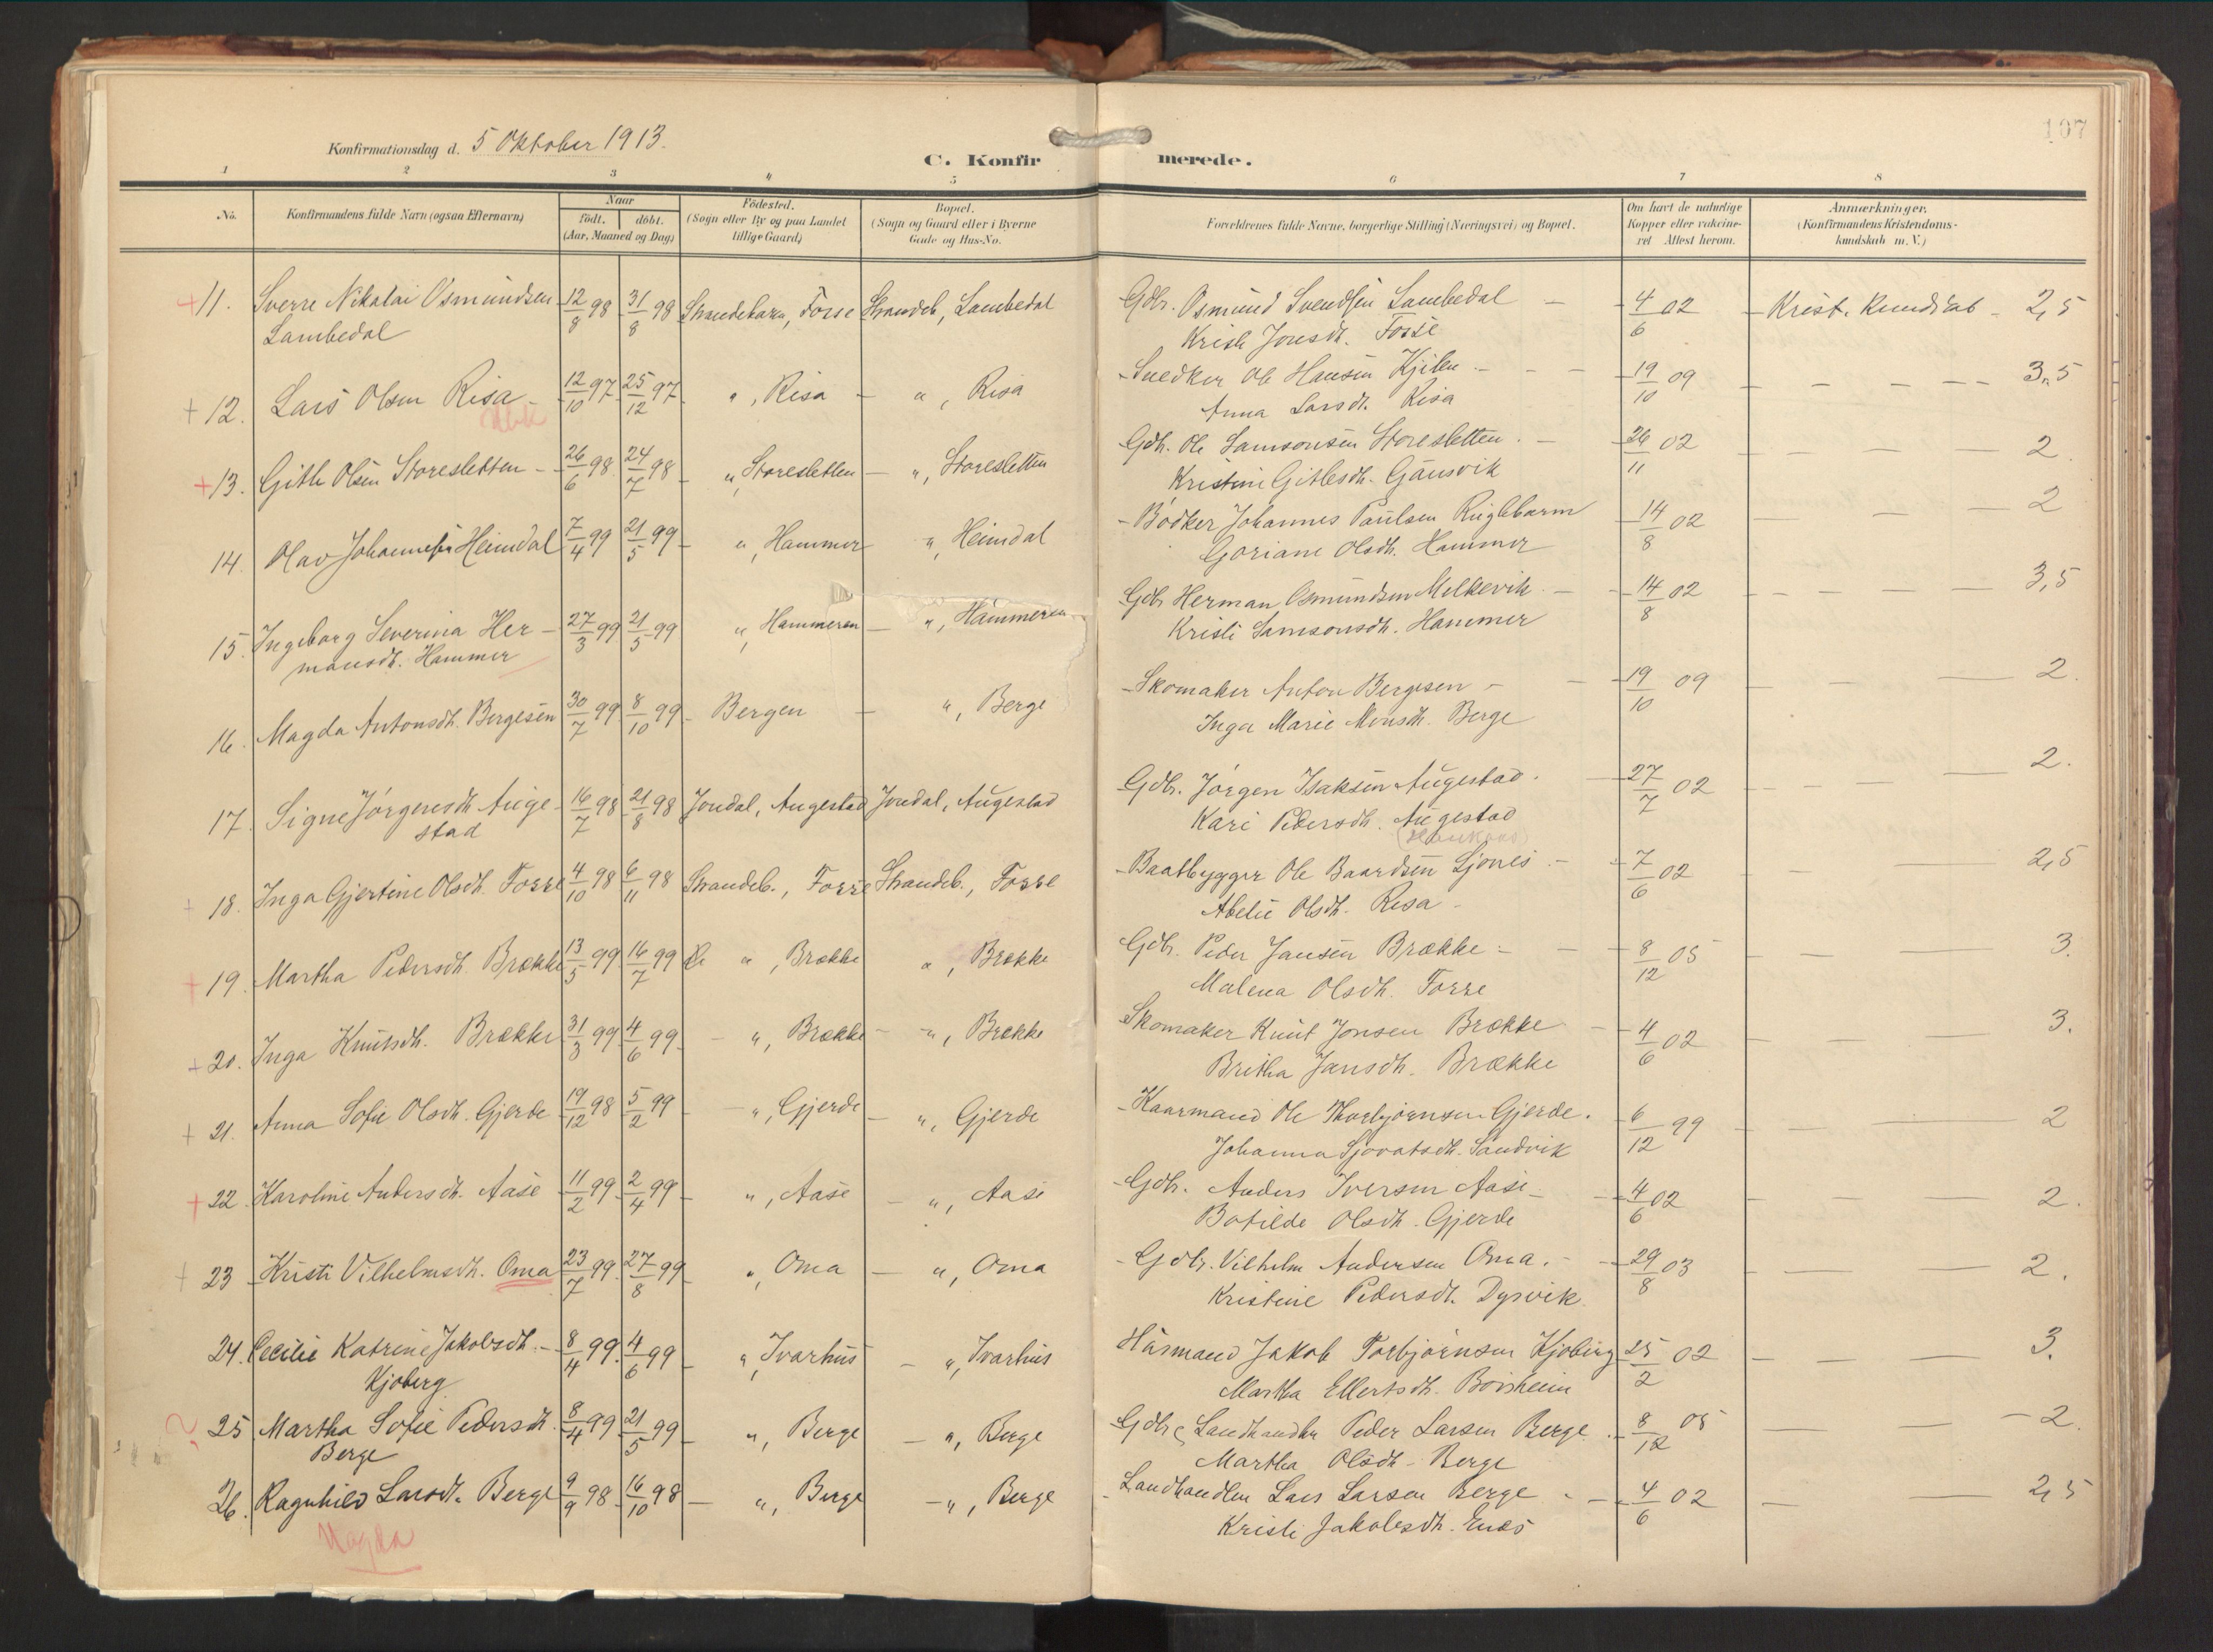 107
Konfirmationsdag d. 5 Oktober 1913.
C. Konfirmerede.
1 2 3 4 5 6 7 8
No.
Konfirmandens fulde Navn (ogsaa Efternavn)
Naar
födt. döbt.
(Aar, Maaned og Dag)
Födested.
(Sogn eller By og paa Landet
tillige Gaard)
Bopæl.
(Sogn og Gaard eller i Byerne
Gade og Hus-No.
Forældrenes fulde Navne, borgerlige Stilling (Næringsvei) og Bopæl.
Om havt de naturlige
Kopper eller vakcine-
ret Attest herom.
Anmærkninger.
(Konfirmandens Kristendoms-
kundskab m. V.)
+ 11. Sverre Nikolai Osmundsen 12/8 98 31/8 98 Strandebarm, Fosse Strandeb, Lambedal Gdbr. Osmund Svendsen Lambedal 4/6 02 Krist. Kundskab 2,5
Lambedal Kristi Jonsdt. Fosse
+ 12. Lars Olsen Risa 12/10 97 25/12 97 ", Risa ", Risa Snedker Ole Hansen Kjilen 19/10 09 3,5
Anna Larsdt. Risa
+ 13. Gitle Olsen Storesletten 26/6 98 24/7 98 ", Storesletten ", Storesletten Gdb. Ole Samsonsen Storesletten 26/11 02 2
Kristine Gitlesdt. Gausvik
14. Olav Johannesen Heimdal 7/4 99 21/5 99 ", Hammer ", Heimdal Bödker Johannes Paulsen 14/8 02 2
Goriane Olsdt. Hammer
15. Ingeborg Severina Her- 27/3 99 21/5 99 ", Hammeren ", Hammeren Gdb. Herman Osmundsen Melkevik 14/8 02 3,5
mansdt. Hammer Kristi Samsonsdt. Hammer
16. Magda Antonsdt. Bergesen 30/7 99 8/10 99 Bergen ", Berge Skomaker Anton Bergesen 19/10 09 2.
Inga Marie Monsdt. Berge
17. Signe Jörgensdt. Auge- 16/7 98 21/8 98 Jondal, Augestad Jondal, Augestad Gdbr. Jörgen Isaksen Augestad 27/7 02 2.
stad Kari Pedersdt. Augestad
+ 18. Inga Gjertine Olsdt. Fosse 4/10 98 6/11 98 Strandeb., Fosse Strandeb., Fosse Baatbygger Ole Baardsen Ljones 7/6 02 2,5
Abelie Olsdt. Risa
+ 19. Martha Pedersdt. Brække 13/5 99 16/7 99 ", Brække ", Brække Gdb. Peder Jansen Brække 8/12 05 3.
Malena Olsdt. Fosse
+ 20. Inga Knutsdt. Brække 31/3 99 4/6 99 ", Brække ", Brække Skomaker Knut Jonsen Brække 4/6 02 3.
Britha Jansdt. Brække
+ 21. Anna Sofie Olsdt. Gjerde 19/12 98 5/2 99 ", Gjerde ", Gjerde Kaarmand Ole Thorbjörnsen Gjerde. 6/12 99 2
Johanna Sjovatsdt. Sandvik
+ 22. Karoline Andersdt. Aase 11/2 99 2/4 99 ", Aase ", Aase Gdb. Anders Iversen Aase 4/6 02 2.
Botilde Olsdt. Gjerde
+ 23 Kristi Vilhelmsdt. Oma 23/7 99 27/8 99 ", Oma ", Oma Gdbr. Vilhelm Andersen Oma. 29/8 03 2.
Kristine Pedersdt. Dysvik
24. Cecilie Katrine Jakobsdt. 8/4 99 4/6 99 ", Ivarhus ", Ivarhus Husmand Jakob Torbjörnsen Kjoberg 25/2 02 3.
Kjoberg Martha Ellertsdt. Börsheim
? 25 Martha Sofie Pedersdt 8/4 99 21/5 99 ", Berge ", Berge Gdbr & Landhandler Peder Larsen Berge 8/12 05 2.
Berge Martha Olsdt. Berge
26. Ragnhild Larsdt. Berge 9/9 98 16/10 98 ", Berge ", Berge Landhandler Lars Larsen Berge 4/6 02 2,5
Magda Kristi Jakobsdt. Enes